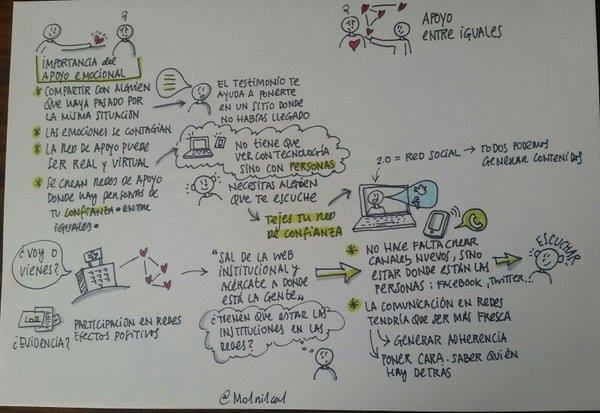 ?
?
APOYO
ENTRE IGUALES
IMPORTANCIA del
APOYO EMOCIONAL
* COMPARTIR CON ALGUIEN
QUE HAYA PASADO POR
LA MISMA SITUACIÓN
* LAS EMOCIONES SE CONTAGIAN
* LA RED DE APOYO PUEDE
SER REAL Y VIRTUAL
* SE CREAN REDES DE APOYO
DONDE HAY PERSONAS DE
TU CONFIANZA. ENTRE
IGUALES.
EL TESTIMONIO TE
AYUDA A PONERTE
EN UN SITIO DONDE
NO HABÍAS LLEGADO
NO TIENE QUE
VER CON TECNOLOGÍA
SINO CON PERSONAS
NECESITAS ALGUIEN
QUE TE ESCUCHE
TEJES TU RED
DE CONFIANZA
2.0 = RED SOCIAL → TODOS PODEMOS
GENERAR CONTENIDOS
¿VOY O
VIENES?
"SAL DE LA WEB
INSTITUCIONAL Y
ACÉRCATE A DONDE
ESTÁ LA GENTE"
* NO HACE FALTA CREAR
CANALES NUEVOS, SINO
ESTAR DONDE ESTÁN LAS
PERSONAS: FACEBOOK, TWITTER...
ESCUCHAR
¿EVIDENCIA?
PARTICIPACIÓN EN REDES
EFECTOS POSITIVOS
¿TIENEN QUE ESTAR LAS
INSTITUCIONES EN LAS
REDES?
* LA COMUNICACIÓN EN REDES
TENDRÍA QUE SER MÁS FRESCA
→ GENERAR ADHERENCIA
PONER CARA. SABER QUIÉN
HAY DETRÁS